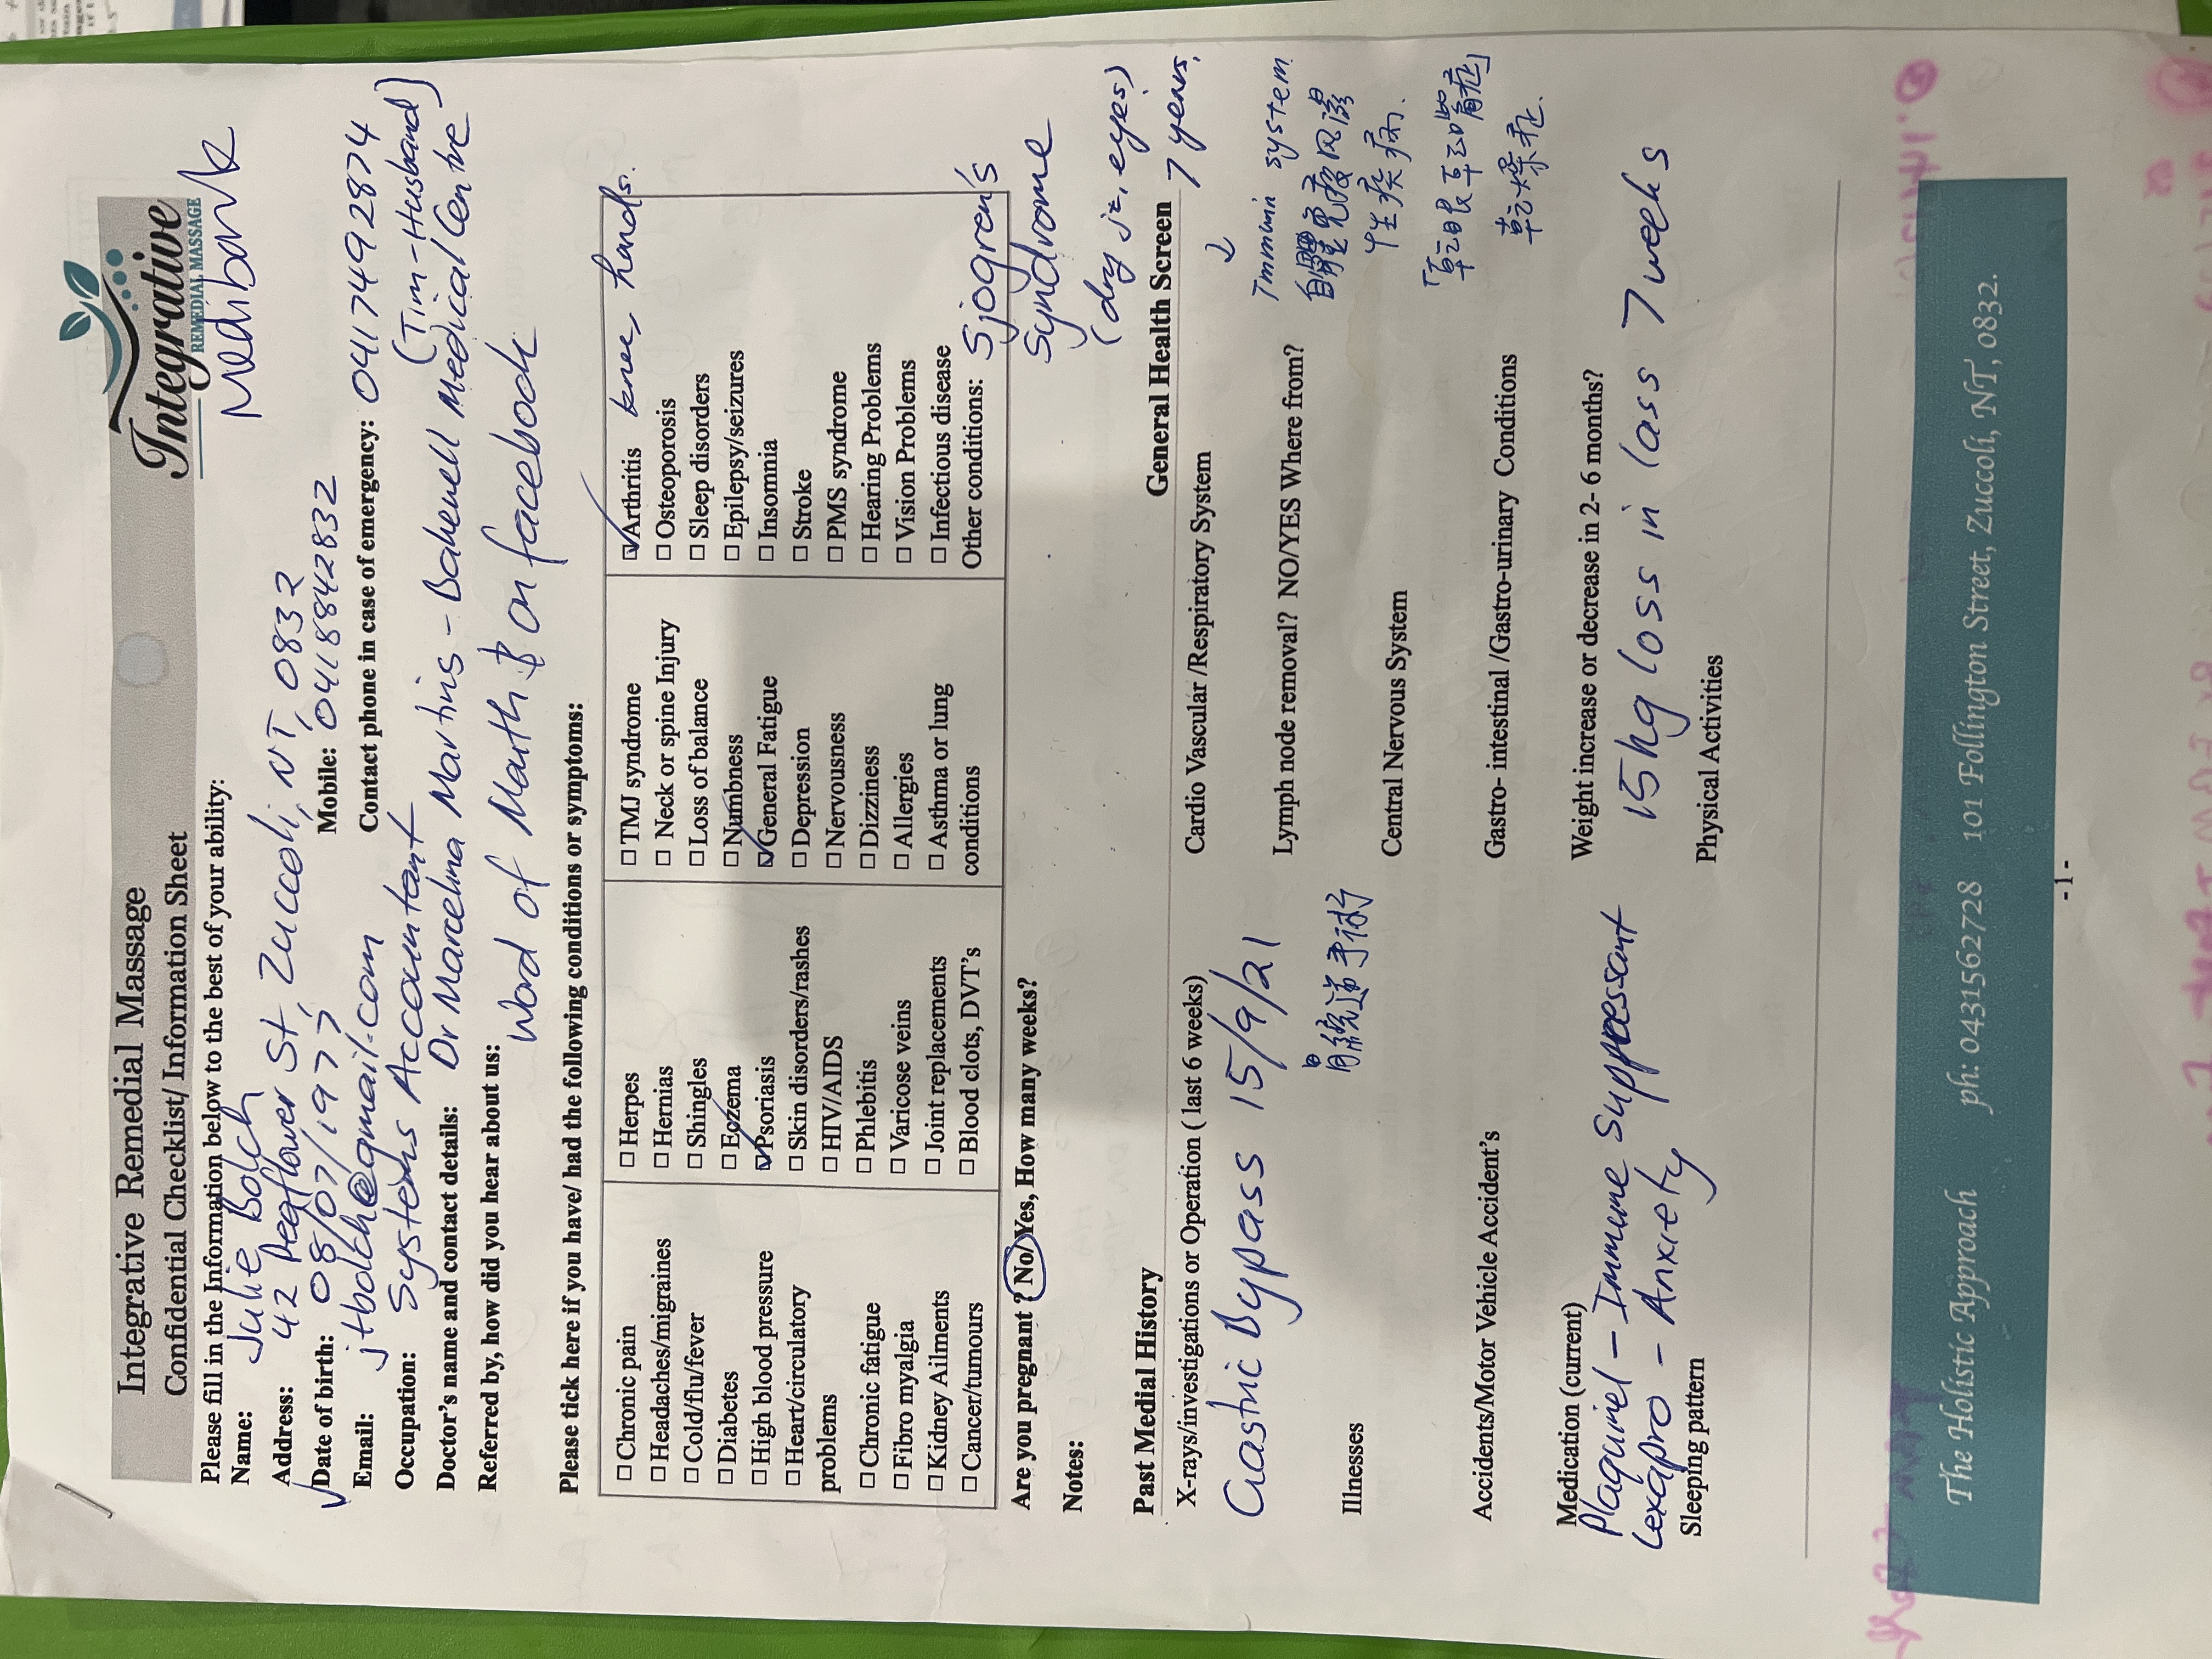 Integrative Remedial Massage
Confidential Checklist/ Information Sheet
Integrative
REMEDIAL MASSAGE
Medibank
Please fill in the Information below to the best of your ability:
Name: Julie Bolch
Address: 42 Pegflower St, Zuccoli, NT, 0832
Date of birth: 08/07/1977 Mobile: 0418842832
Email: jtbolch@gmail.com Contact phone in case of emergency: 0417492874
(Tim-Husband)
Occupation: Systems Accountant
Doctor's name and contact details: Dr Marcelina Martins - Bakewell Medical Centre
Referred by, how did you hear about us:
Word of Mouth & on facebook
Please tick here if you have/ had the following conditions or symptoms:
☐ Chronic pain
☐ Headaches/migraines
☐ Cold/flu/fever
☐ Diabetes
☐ High blood pressure
☐ Heart/circulatory
problems
☐ Chronic fatigue
☐ Fibro myalgia
☐ Kidney Ailments
☐ Cancer/tumours
☐ Herpes
☐ Hernias
☐ Shingles
☐ Eczema
☑ Psoriasis
☐ Skin disorders/rashes
☐ HIV/AIDS
☐ Phlebitis
☐ Varicose veins
☐ Joint replacements
☐ Blood clots, DVT's
☐ TMJ syndrome
☐ Neck or spine Injury
☐ Loss of balance
☐ Numbness
☑ General Fatigue
☐ Depression
☐ Nervousness
☐ Dizziness
☐ Allergies
☐ Asthma or lung
conditions
☑ Arthritis knee, hands.
☐ Osteoporosis
☐ Sleep disorders
☐ Epilepsy/seizures
☐ Insomnia
☐ Stroke
☐ PMS syndrome
☐ Hearing Problems
☐ Vision Problems
☐ Infectious disease
Other conditions: Sjogren's
Syndrome
(dry eyes)
7 years.
Are you pregnant? No/Yes, How many weeks?
Notes:
Past Medial History
X-rays/investigations or Operation ( last 6 weeks)
Gastric Bypass 15/9/21
胃繞道手術
Illnesses
Accidents/Motor Vehicle Accident's
Medication (current)
Plaquinel - Immune Suppressant
Lexapro - Anxiety
Sleeping pattern
General Health Screen
↓
Immuin system
自體免疫風溼
性疾病.
「乾眼乾口
乾燥症.
Cardio Vascular /Respiratory System
Lymph node removal? NO/YES Where from?
Central Nervous System
Gastro- intestinal /Gastro-urinary Conditions
Weight increase or decrease in 2- 6 months?
15kg loss in lass 7 weeks
Physical Activities
The Holistic Approach ph: 0431562728 101 Follington Street, Zuccoli, NT, 0832.
- 1 -